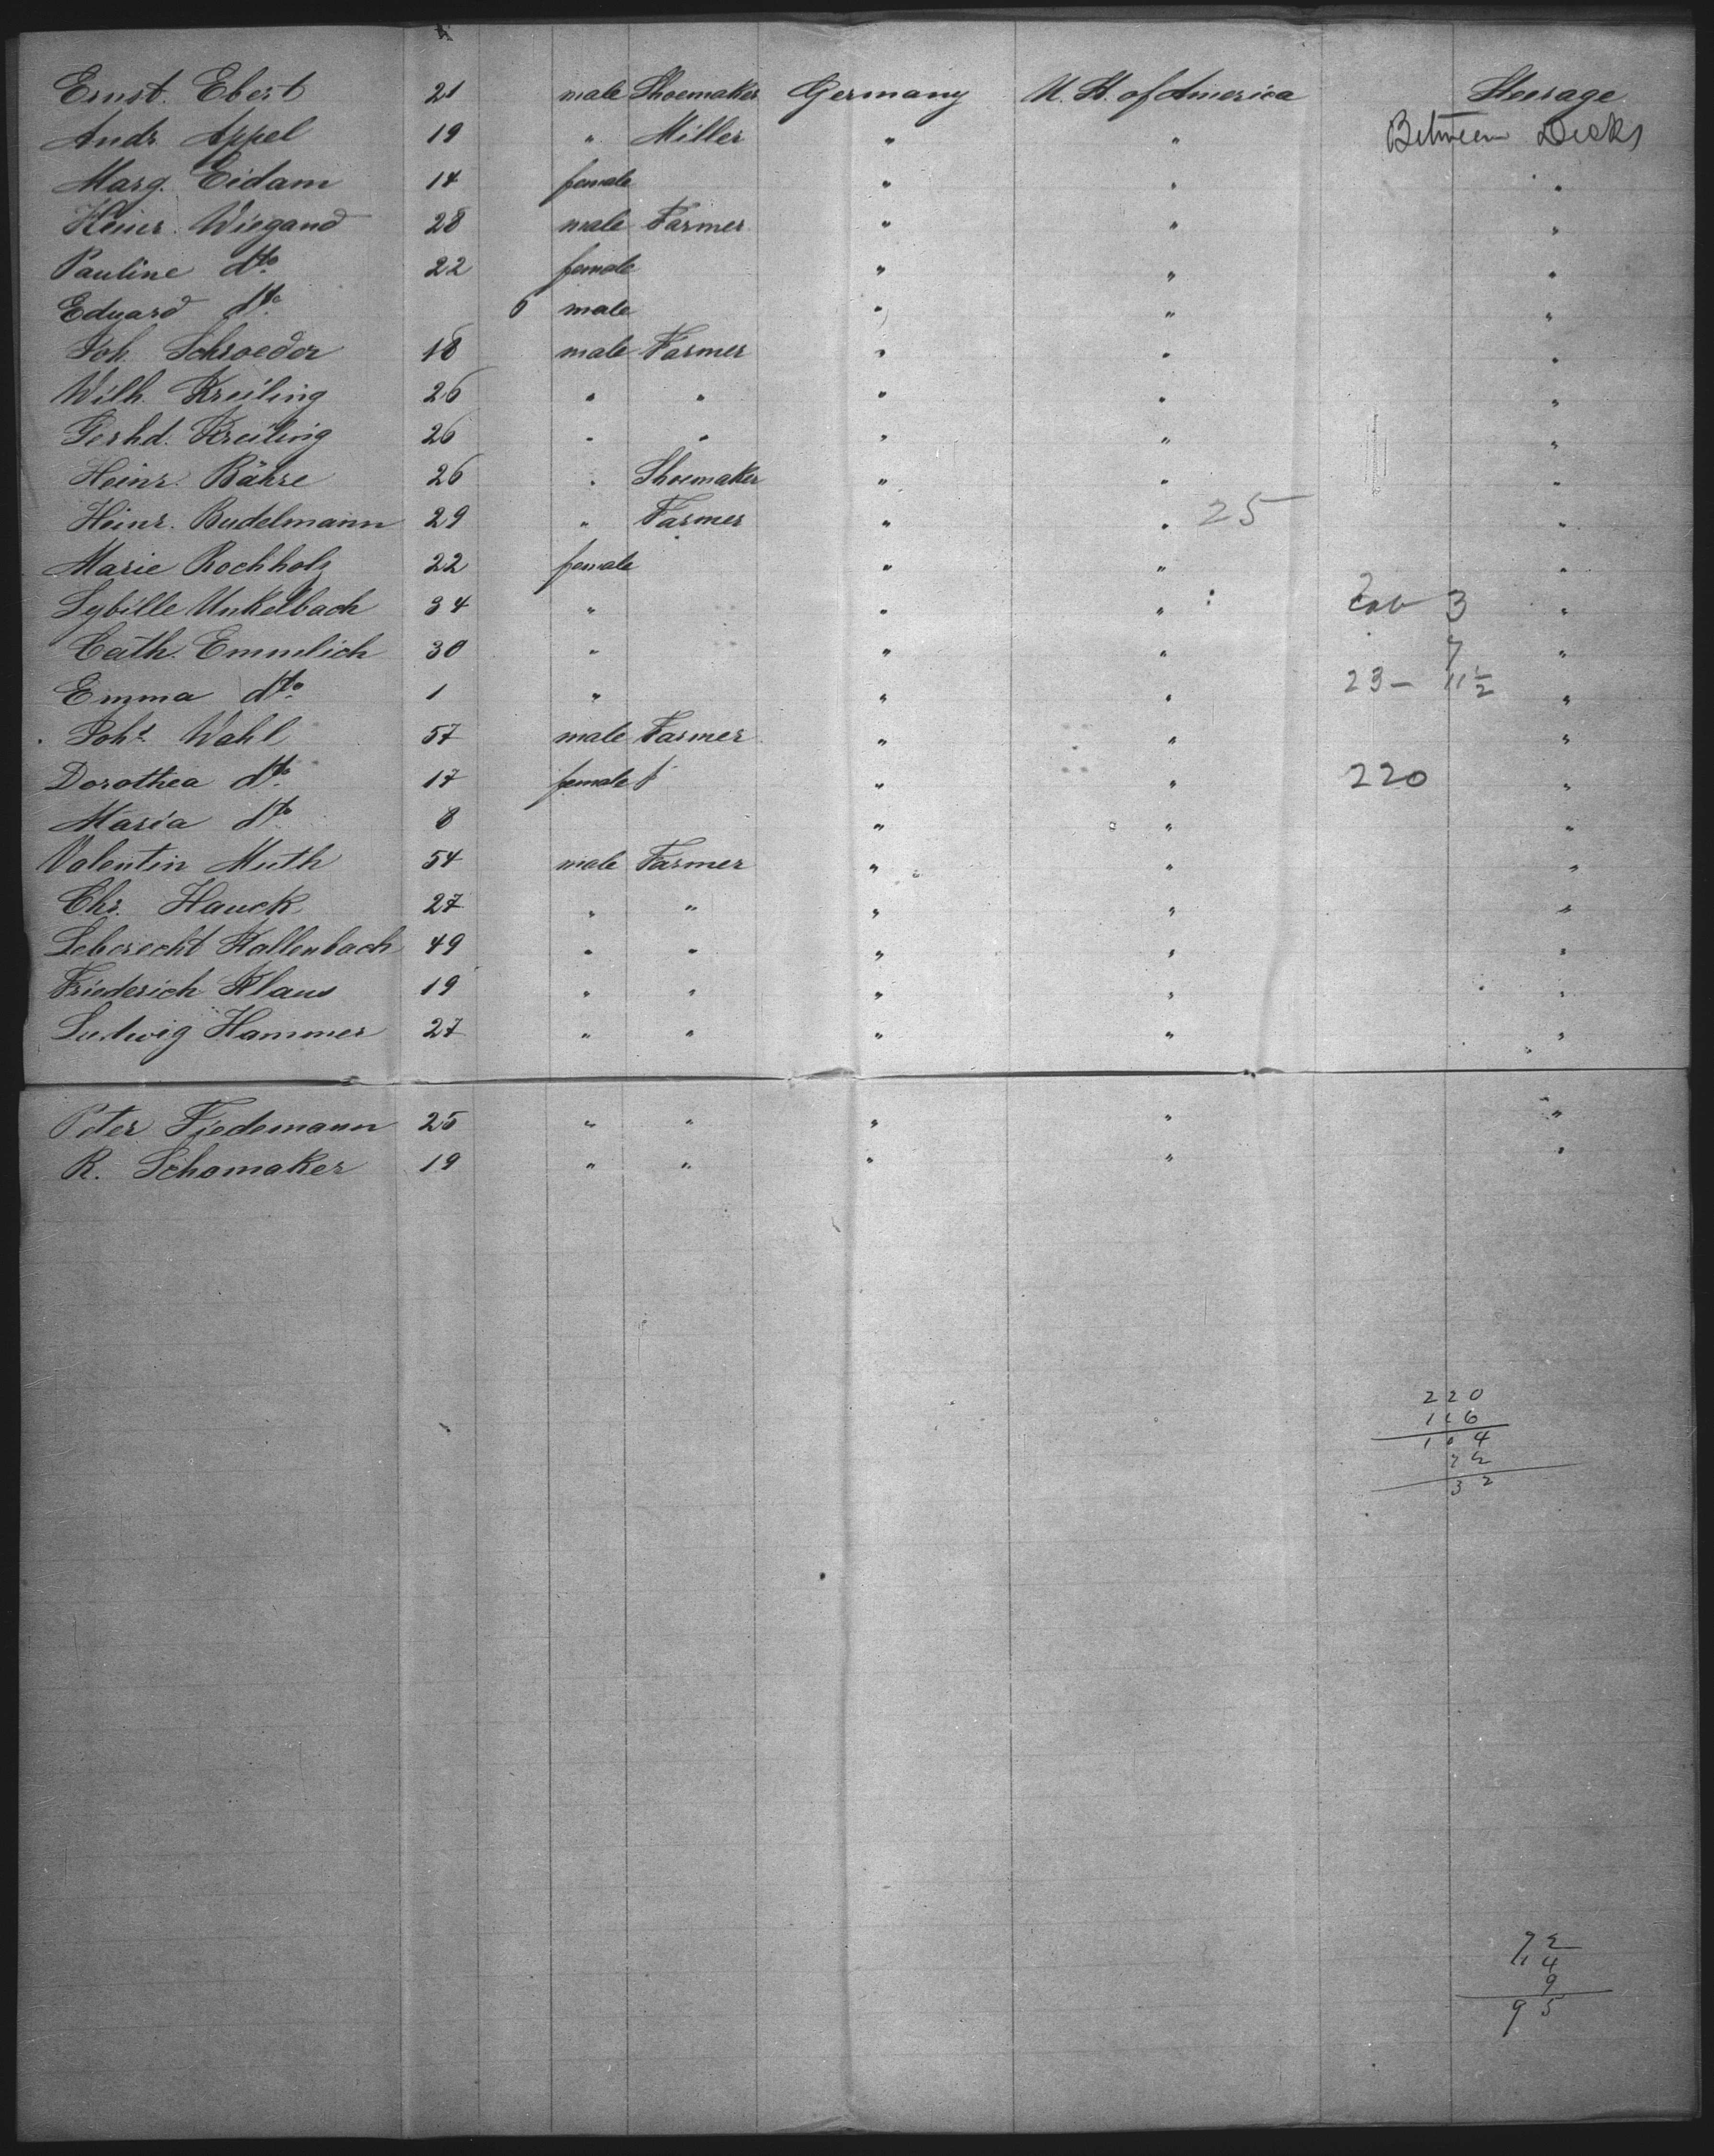 Ernst. Ebert 21 male Shoemaker Germany U. St. of America Steerage
Andr. Appel 19 " Miller " " Between Decks
Marg. Eidam 14 female " " "
Heinr. Wiegand 28 male Farmer " " "
Pauline dto 22 female " " "
Eduard dto 6 male " " "
Joh. Schroeder 18 male Farmer " " "
Wilh. Kreiling 26 " " " " "
Gerhd. Kreiling 26 " " " " "
Heinr. Bähre 26 " Shoemaker " " "
Heinr. Budelmann 29 " Farmer " " 25 "
Marie Rochholz 22 female " " "
Sybille Unkelbach 34 " " " Cab 3 "
Cath. Emmelich 30 " " " 7 "
Emma dto 1 " " " 23 - 11 1/2 "
Joht Wahl 57 male Farmer " " "
Dorothea dto 17 female " " 220 "
Maria dto 8 " " "
Valentin Muth 54 male Farmer " " "
Chr. Hauck 27 " " " " "
Leberecht Kallenbach 49 " " " " "
Friederich Klaus 19 " " " " "
Ludwig Hammer 27 " " " " "
Peter Tiedemann 25 " " " " "
R. Schomaker 19 " " " " "
220
116
104
72
32
72
14
9
95